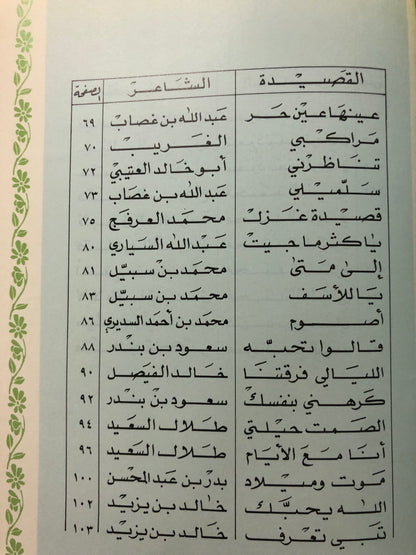 القصيدة الشاعر الصفحة
عينها عين حر عبد الله بن غصاب ٦٩
مراكبي الغريب ٧٠
تناظرني أبو خالد العتيبي ٧٢
سلميلي عبد الله بن غصاب ٧٣
قصيدة غزل محمد العرفج ٧٥
ياكثر ما جيت عبد الله السياري ٨٠
إلى متى محمد بن سبيل ٨١
ياللأسف محمد بن سبيل ٨٣
أصوم محمد بن أحمد السديري ٨٦
قالوا تحبه سعود بن بندر ٨٨
الليالي فرقتنا خالد الفيصل ٩٠
كرهني بنفسك سعود بن بندر ٩٢
الصمت حيلتي طلال السعيد ٩٤
أنا مع الأيام طلال السعيد ٩٦
موت وميلاد بدر بن عبد المحسن ١٠٠
الله يحبك خالد بن يزيد ١٠٢
تبي تعرف خالد بن يزيد ١٠٣